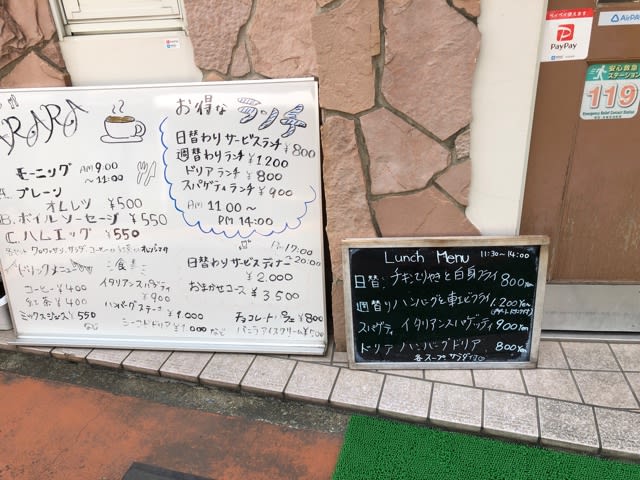 ARARA
モーニング AM 9:00
～11:00
A. プレーン
オムレツ ¥500
B. ボイルソーセージ ¥550
C. ハムエッグ ¥550
コーヒー ¥400
紅茶 ¥400
ミックスジュース ¥550
など
イタリアンスパゲティ
¥900
ハンバーグステーキ
¥1.000
シーフードドリア ¥1.000 など
お得な ランチ
日替わり サービスランチ ¥800
週替わり ランチ ¥1200
ドリアランチ ¥800
スパゲティランチ ¥900
AM 11:00 ～
PM 14:00
PM 17:00
～20:00
日替わり サービスディナー
¥2.000
おまかせコース ¥3500
チョコレートパフェ ¥800
バニラアイスクリーム ¥500
Lunch Menu 11:30～14:00
日替: チキンてりやきと白身フライ 800Yen
週替り ハンバーグと車エビフライ 1.200Yen
スパゲティ イタリアンスパゲッティ 900Yen
ドリア ハンバーグドリア 800Yen
各スープサラダ
ペイペイ使えます
PayPay
AirPAY
安心救急
ステーション
119
Emergency Relief Contact Station